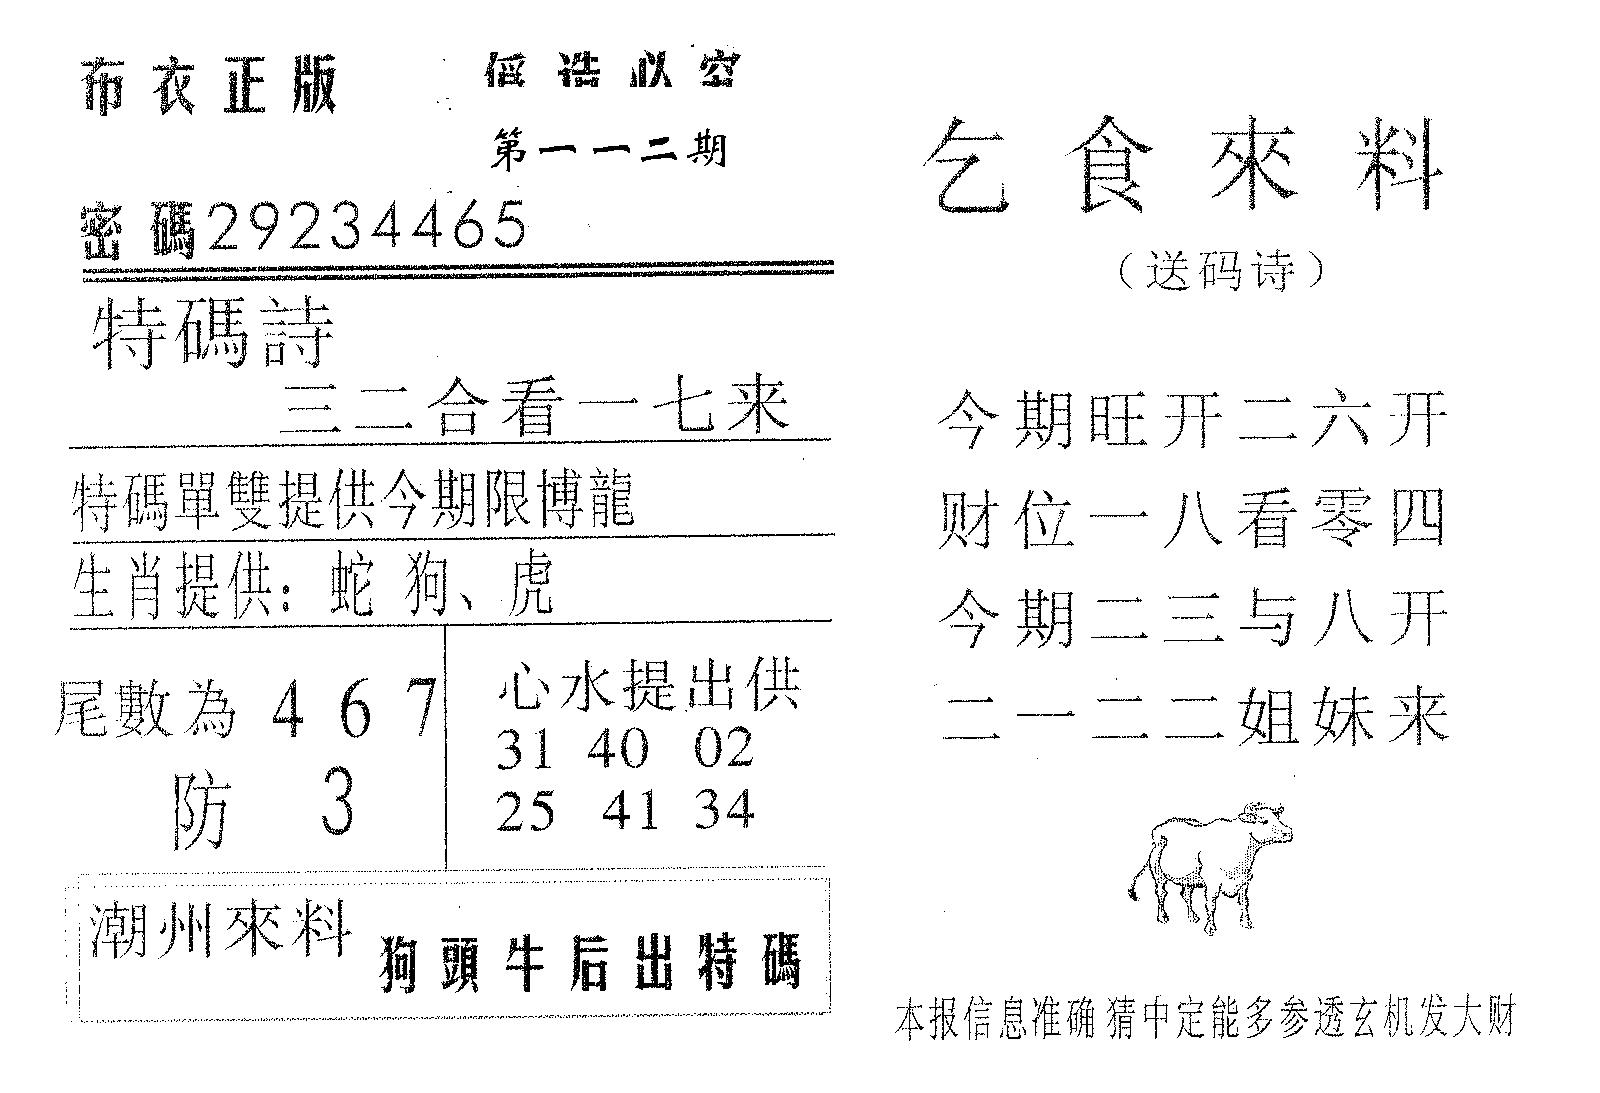 布衣正版
伪造必究
第一一二期
密碼29234465
特碼詩
三二合看一七来
特碼單雙提供今期限博龍
生肖提供：蛇 狗、虎
尾數為 4 6 7
防 3
心水提出供
31 40 02
25 41 34
潮州來料
狗頭牛后出特碼
乞食來料
（送码诗）
今期旺开二六开
财位一八看零四
今期二三与八开
二一二二姐妹来
本报信息准确 猜中定能多参透玄机发大财